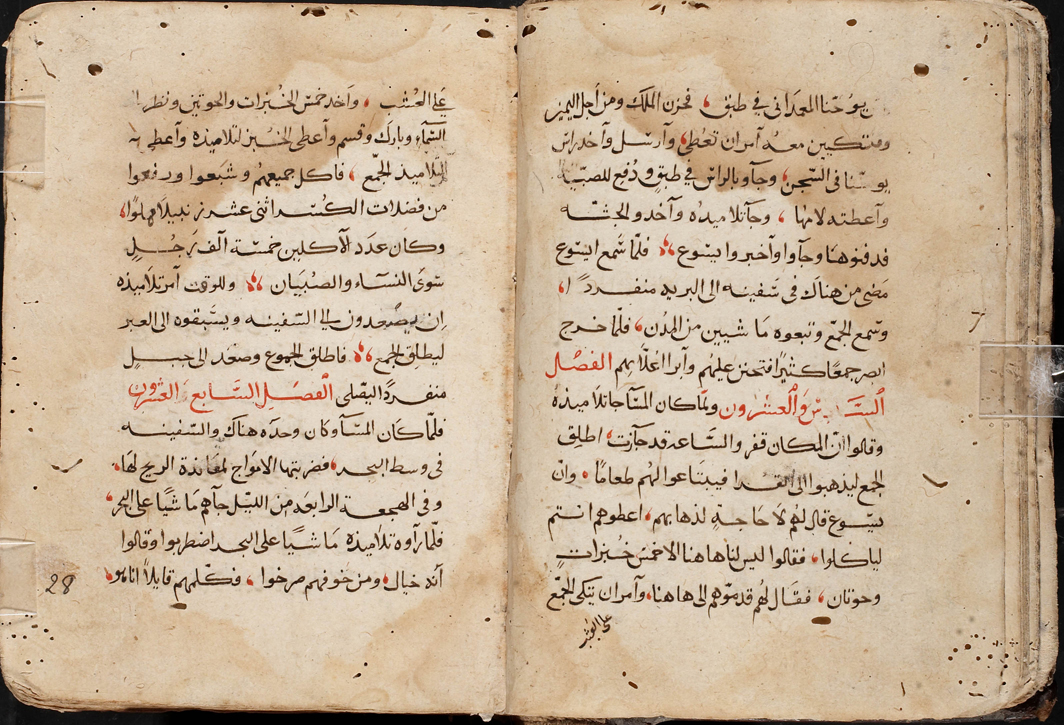 يوحنا المعمداني في طبق، فحزن الملك ومن اجل اليمين
ومتكيين معه آمر ان تعطى، وآرسل وآخد راس
يوحنا فى السجن، وجآو بالراس في طبق ودُفع للصبية
وآعطته لامها، وجآ تلاميده وآخدو الجثه
فدفنوها وجآوا وآخبروا يسوع فلمّا سمع ايسوع
مضى من هناك فى سفينه الى البريه منفردًا،
وسمع الجمع وتبعوه ماشيين من المدن، فلمّا خرج
ابصر جمعًا كثيرًا فتحنن عليهم وآبرا اعلّايهم الفصل
السادس والعشرون ولما كان المسآ جا تلاميذه
وقالوا انّ المكان قفر والساعه قد جآزت، اطلق
الجمع ليذهبوا الى القرا فيبتاعوا لهم طعامًا، وانّ
يسوع قال لهم لا حاجةٍ لذهابهم، اعطوهم انتم
لياكلوا، فقالوا ليس لنا هاهنا الا خمس خُبزاتٍ
وحوتان، فقال لهم قدموهم الى هاهنا، وآمر ان يتكى الجمّع
على العُشب
على العُشب، وآخد خمس الخُبزات والحوتين ونظر الى
السمآء وبارك وقسم وآعطى الخبز لتلاميذه وآعطى
التلاميذ الجمّع، فاكل جميعهم وشبعوا ورفعوا
من فضلات الكسر اثنى عشر زنبيلا مملوا،
وكان عدد الآكلين خمسة آلف رَجُلٍ
سوى النسآء والصبيان وللوقت آمر تلاميذه
ان يصعدون الى السفينه ويسبقوه الى العبر
ليطلق الجمع، فاطلق الجموع وصعد الى جبلٍ
منفردًا ليصلى الفصل السابع والعشرون
فلمّا كان المسآ وكان وحده هناك والسفينه
فى وسط البحر، فضربتها الامواج لمعاندة الريح لها،
وفى الهجعة الرابعه من الليل جآهم ماشيًا على البحر،
فلمّا رآوه تلاميذه ماشيًا على البحر اضطربوا وقالوا
آنه خيال، ومن خوفهم صرخوا، فكلمهم قايلًا انا هو،
28